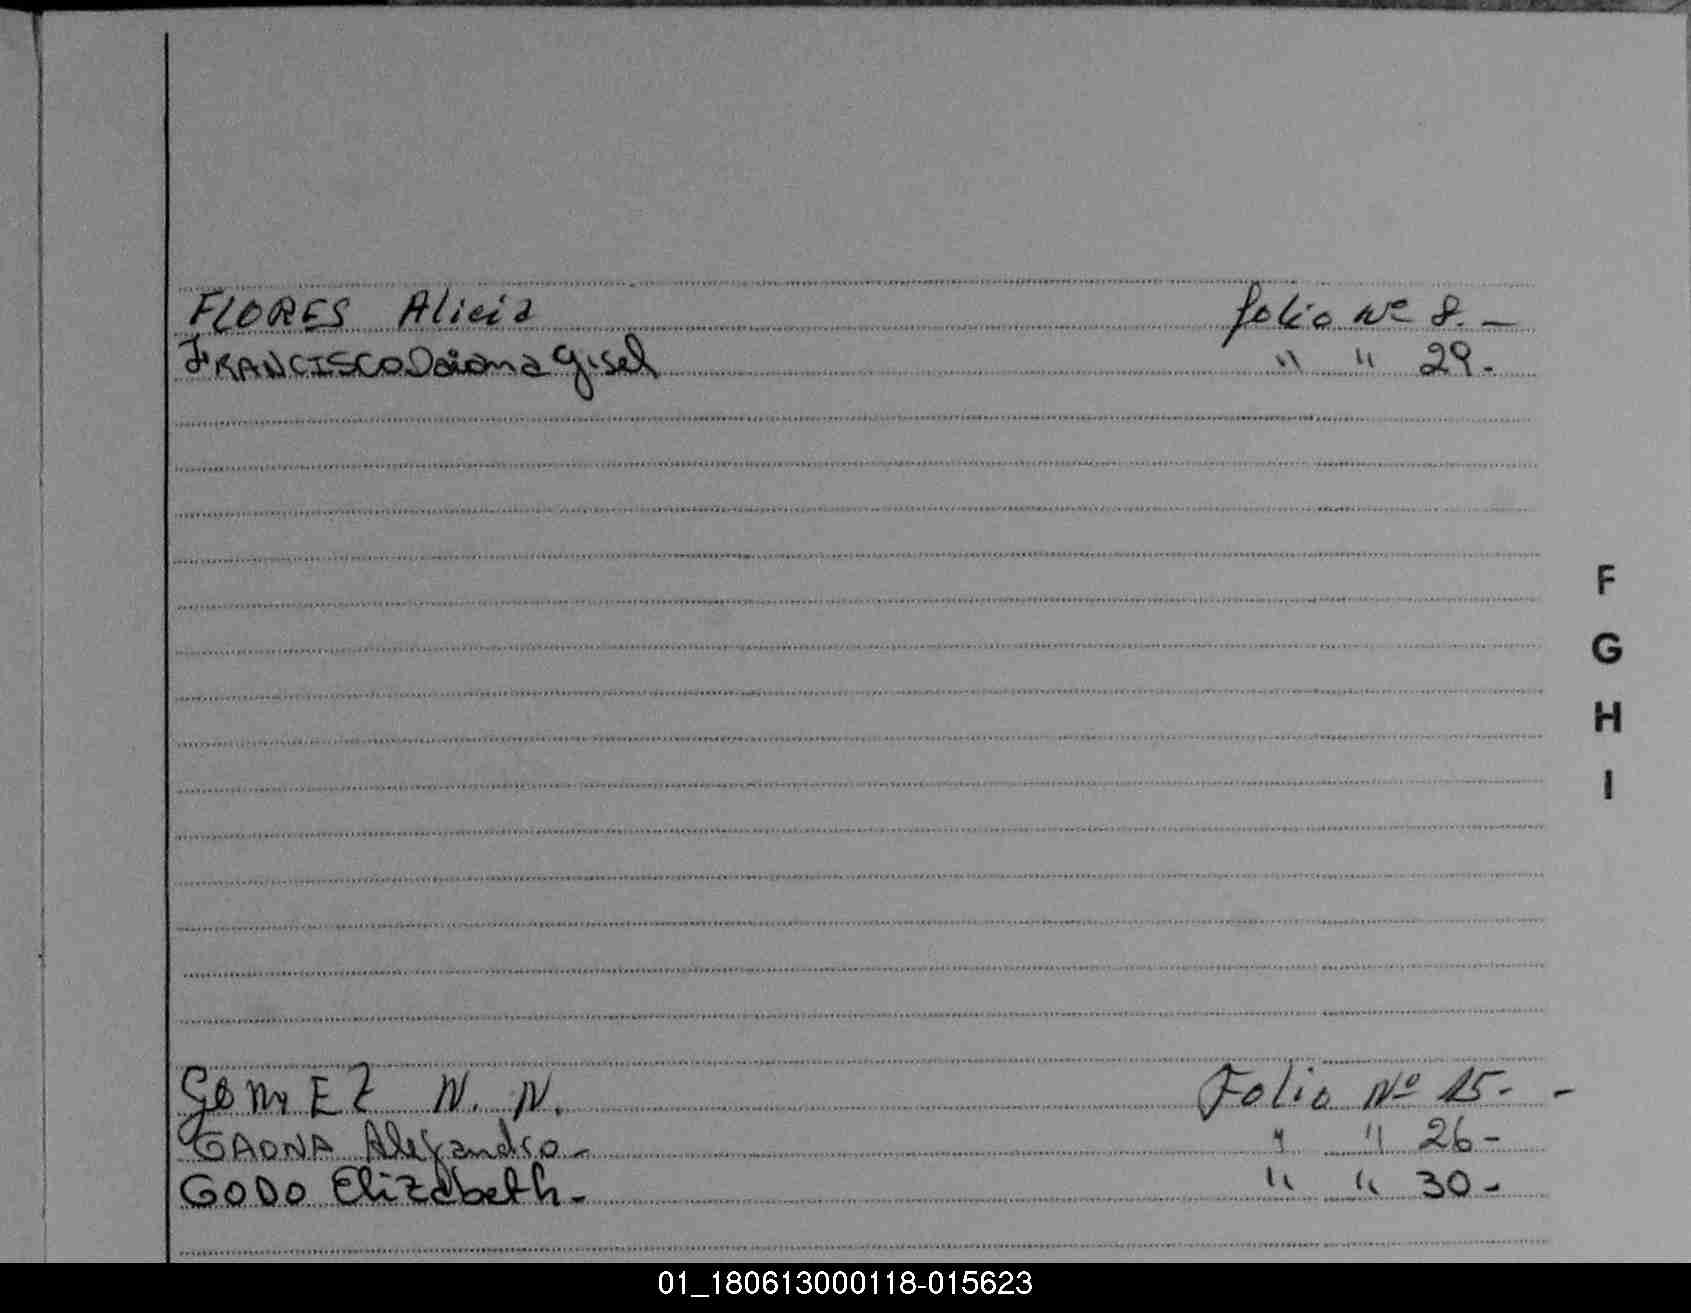 FLORES Alicia folio Nº 8. -
FRANCISCO Daiana Gisel " " 29.
F
G
H
I
GOMEZ N. N. Folio Nº 15. -
GAONA Alejandro - " " 26 -
GODO Elizabeth - " " 30 -
01_180613000118-015623